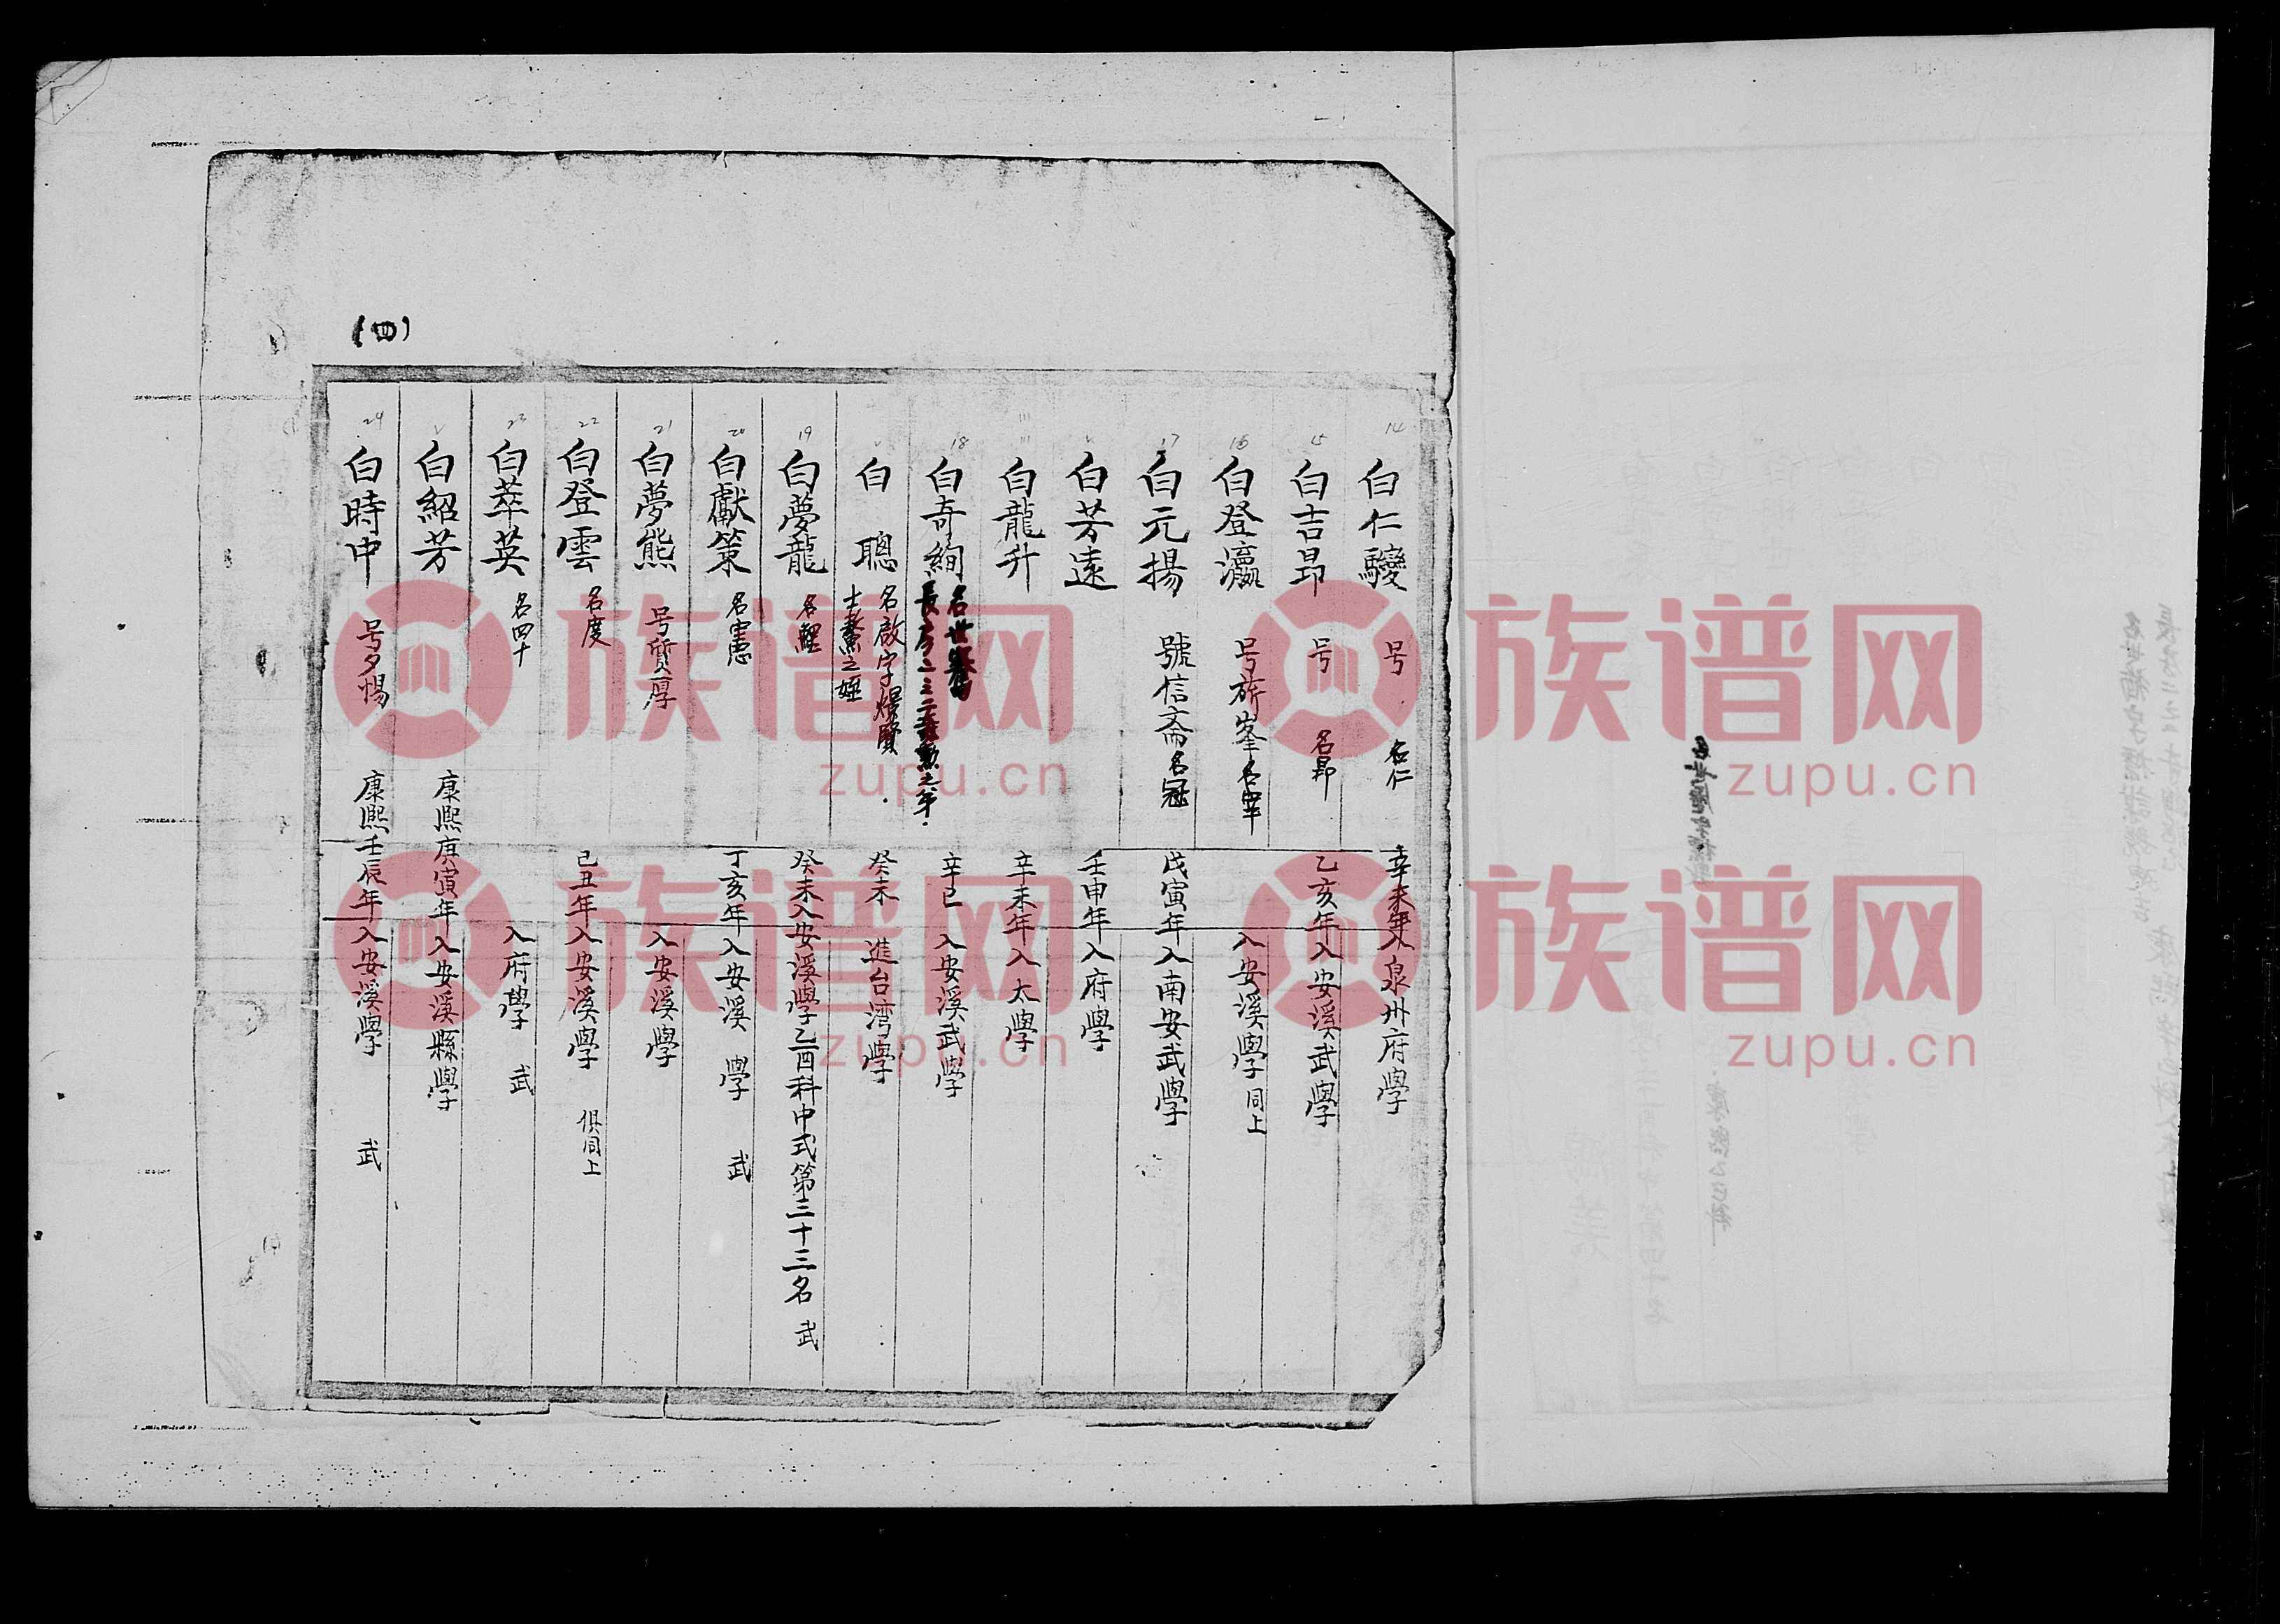 (四)
14 白仁驂 号 名仁 辛未年入泉州府學
15 白吉昂 号 名昂 乙亥年入安溪武學
16 白登瀛 号旂峯 名宰 入安溪學 同上
17 白元揚 號信斎 名冠 戊寅年入南安武學
白芳遠 壬申年入府學
白龍升 辛未年入太學
18 白奇絢 名世 長房二三三 之弟 辛巳 入安溪武學
白聰 名啟字 士 之姪 癸未 進台湾學
19 白夢龍 名鯉 癸未入安溪學乙酉科中式第三十三名 武
20 白獻策 名憲 丁亥年入安溪學 武
21 白夢熊 号質厚 入安溪學
22 白登雲 名度 己丑年入安溪學 俱同上
23 白萃英 名四十 入府學 武
白紹芳 康熙庚寅年入安溪縣學
24 白時中 号夕惕 康熙壬辰年入安溪學 武
族谱网
zupu.cn
族谱网
zupu.cn
族谱网
zupu.cn
族谱网
zupu.cn